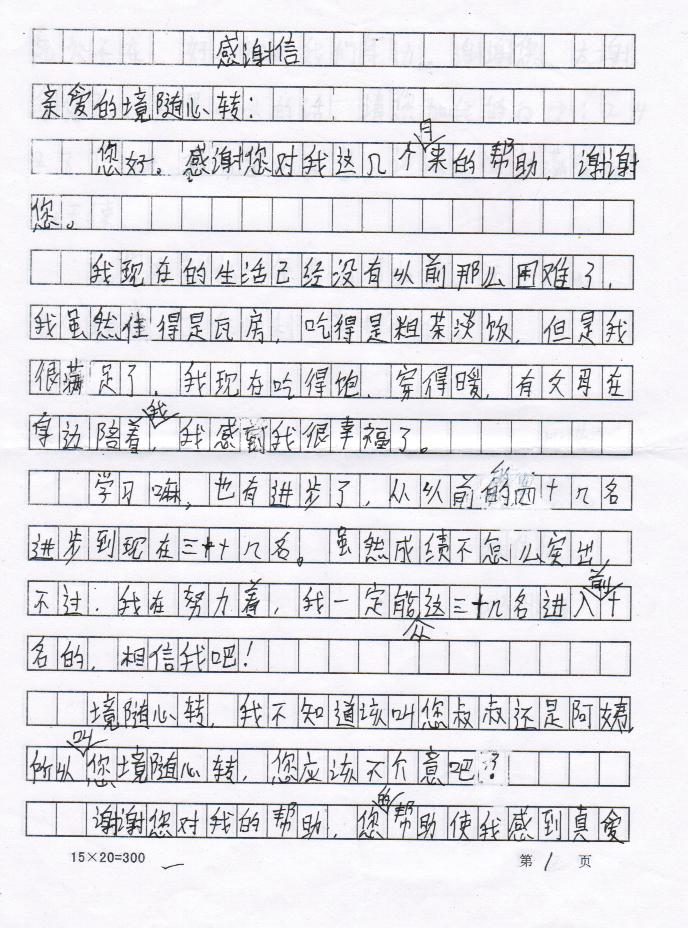 感谢信
亲爱的境随心转：
您好。感谢您对我这几个月来的帮助，谢谢
您。
我现在的生活已经没有以前那么困难了，
我虽然住得是瓦房，吃得是粗茶淡饭，但是我
很满足了，我现在吃得饱，穿得暖，有父母在
身边陪着我，我感到我很幸福了。
学习嘛，也有进步了，从以前的四十几名
进步到现在三十几名。虽然成绩不怎么突出，
不过，我在努力着，我一定能从这三十几名进入前十
名的，相信我吧！
境随心转，我不知道该叫您叔叔还是阿姨，
所以叫您境随心转，您应该不介意吧？
谢谢您对我的帮助，您的帮助使我感到真爱
15×20=300
第 1 页